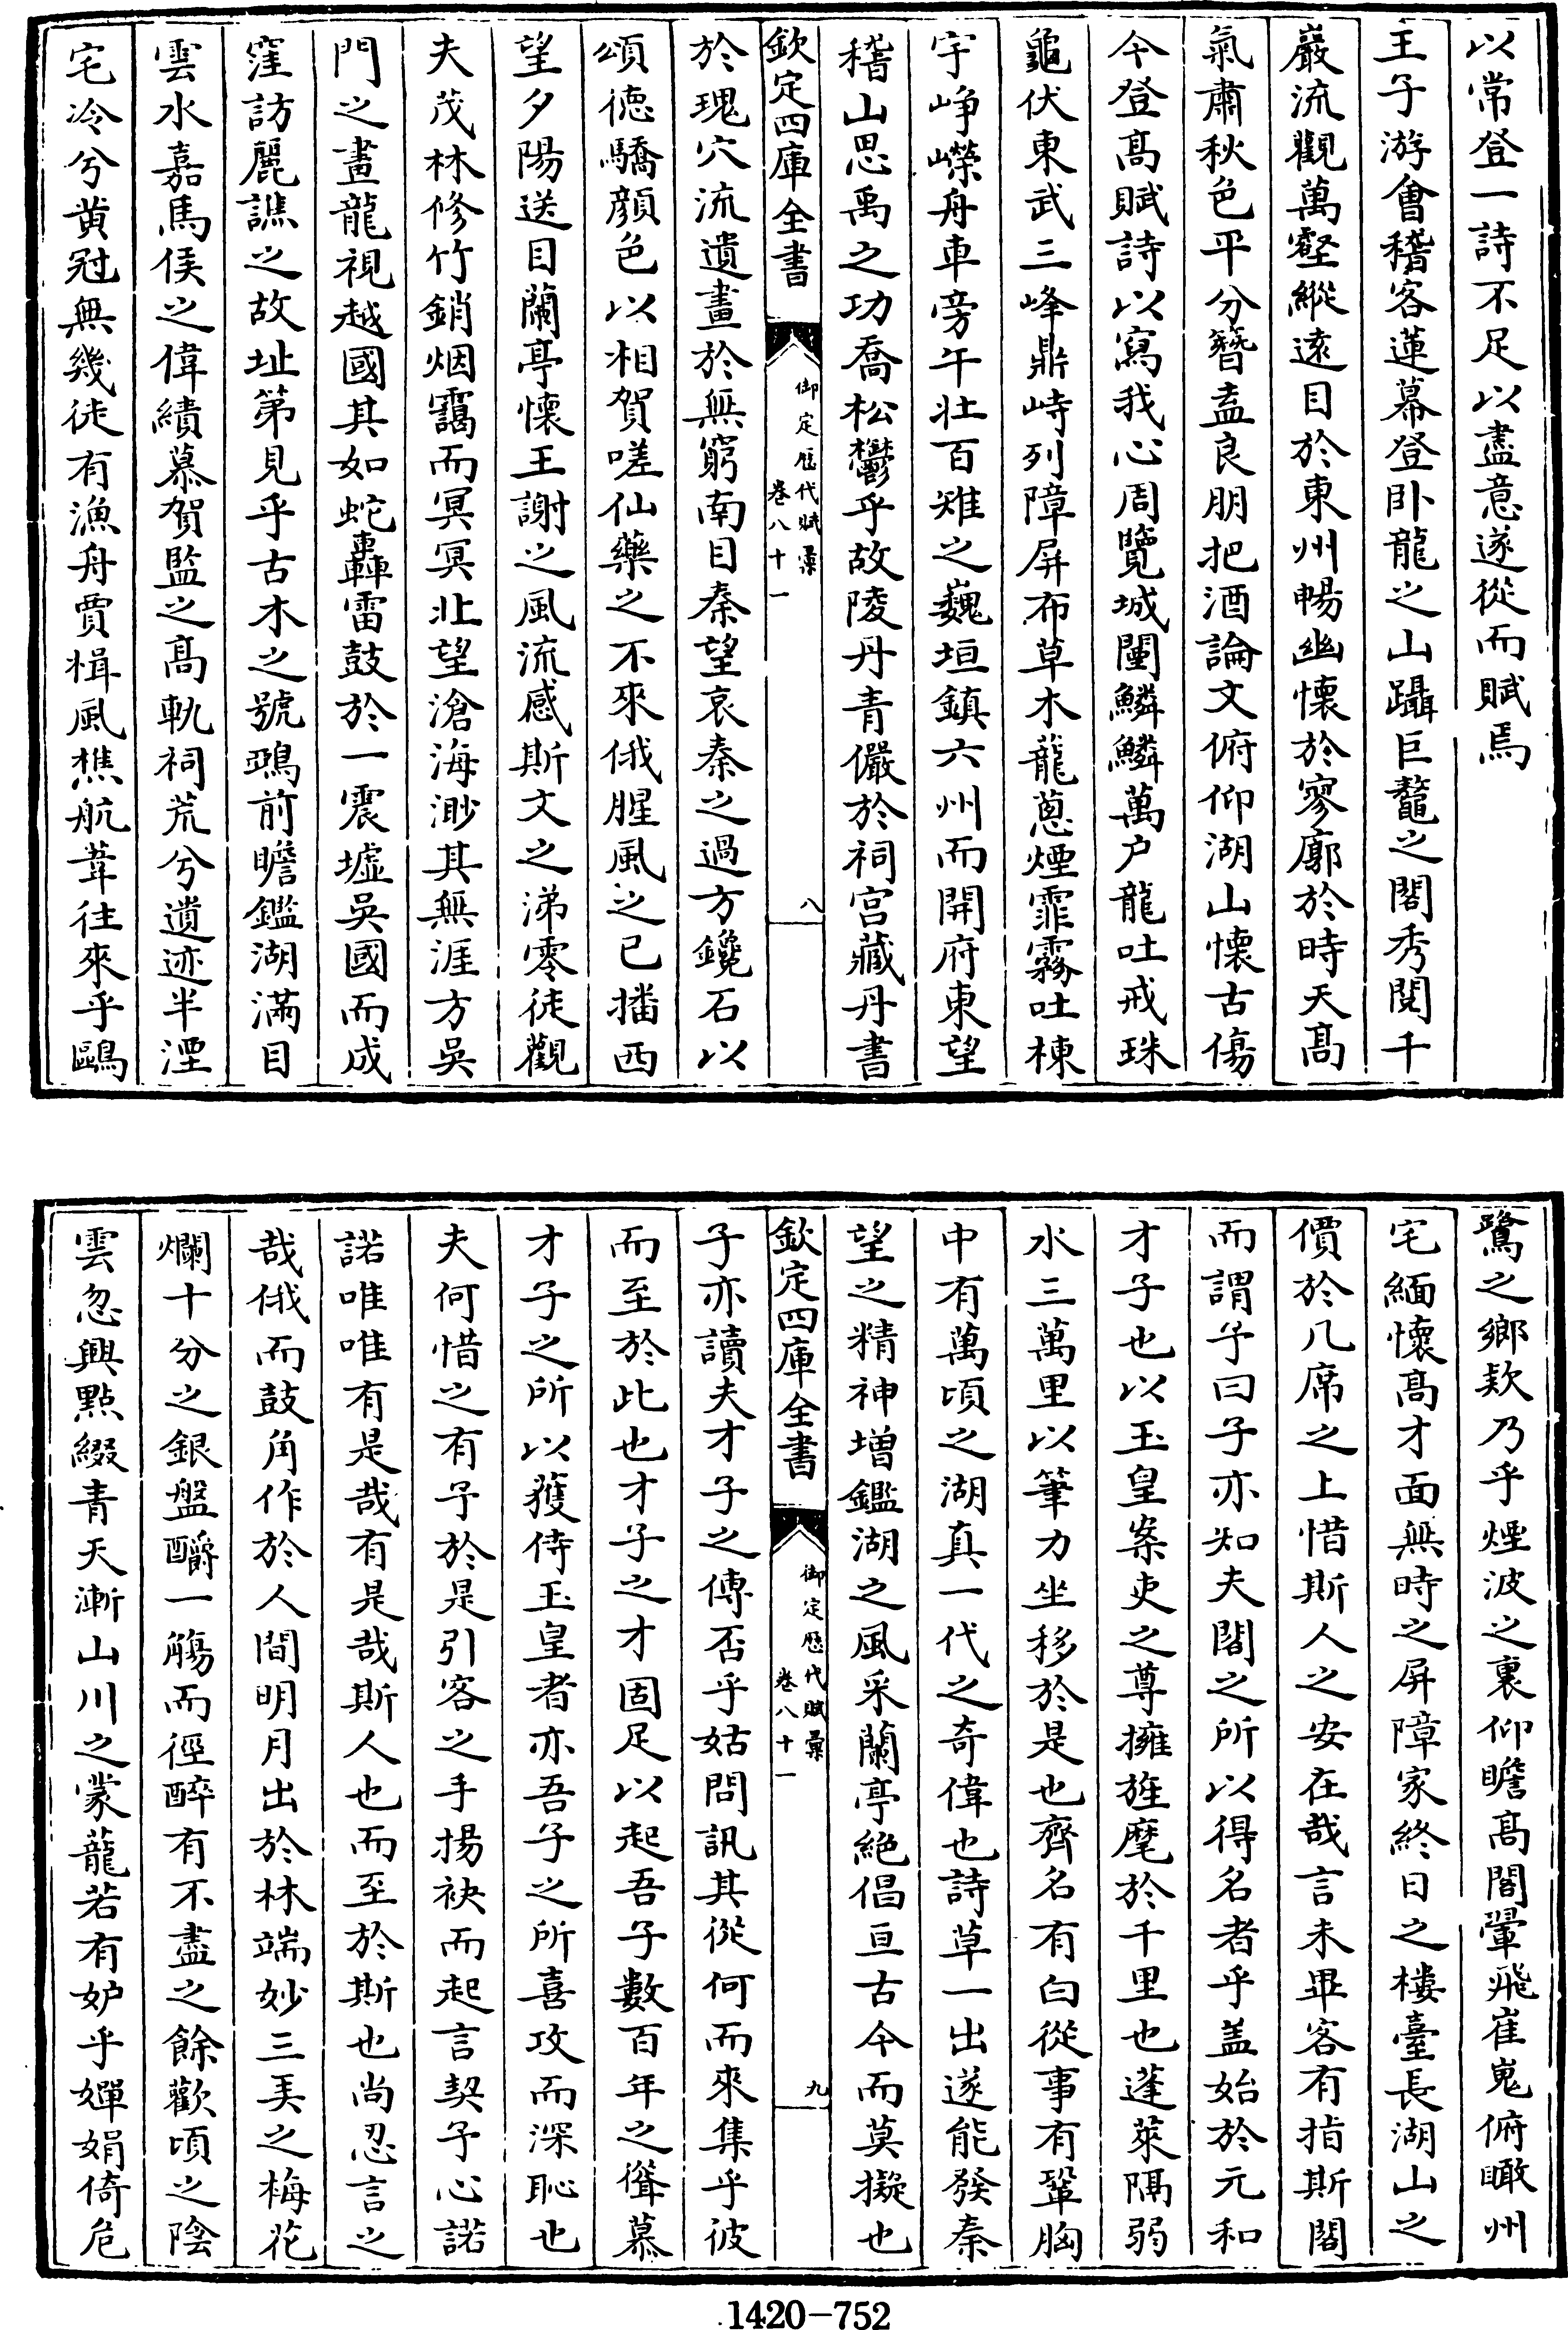 以常登一詩不足以盡意遂從而賦焉
王子游會稽客蓮幕登卧龍之山躡巨鼇之閣秀閱千
巖流觀萬壑縱遠目於東州暢幽懷於寥廓於時天髙
氣肅秋色平分簪盍良朋把酒論文俯仰湖山懷古傷
今登髙賦詩以寫我心周覽城闉鱗鱗萬户龍吐戒珠
龜伏東武三峰鼎峙列障屏布草木蘢蔥煙霏霧吐棟
宇崢嶸舟車旁午壯百雉之巍垣鎮六州而開府東望
稽山思禹之功喬松鬱乎故陵丹青儼於祠宫藏丹書
欽定四庫全書
御定歴代賦彚
卷八十一
八
於瑰穴流遺畫於無窮南目秦望哀秦之過方鑱石以
頌德驕顔色以相賀嗟仙藥之不來俄腥風之已播西
望夕陽送目蘭亭懷王謝之風流感斯文之涕零徒觀
夫茂林修竹銷烟靄而冥冥北望滄海渺其無涯方吳
門之畫龍視越國其如蛇轟雷鼓於一震墟吳國而成
窪訪麗譙之故址第見乎古木之號鵶前瞻鑑湖滿目
雲水嘉馬侯之偉績慕賀監之髙軌祠荒兮遺迹半湮
宅冷兮黄冠無幾徒有漁舟賈楫風樵航葦往來乎鷗
鷺之鄉欵乃乎煙波之裏仰瞻髙閣翬飛崔嵬俯瞰州
宅緬懷髙才面無時之屏障家終日之樓臺長湖山之
價於几席之上惜斯人之安在哉言未畢客有指斯閣
而謂予曰子亦知夫閣之所以得名者乎盖始於元和
才子也以玉皇案吏之尊擁旌麾於千里也蓬萊隔弱
水三萬里以筆力坐移於是也齊名有白從事有鞏胸
中有萬頃之湖真一代之奇偉也詩草一出遂能發秦
望之精神增鑑湖之風采蘭亭絶倡亘古今而莫擬也
欽定四庫全書
御定歴代賦彚
卷八十一
九
子亦讀夫才子之傳否乎姑問訊其從何而來集乎彼
而至於此也才子之才固足以起吾子數百年之聳慕
才子之所以獲侍玉皇者亦吾子之所喜攻而深恥也
夫何惜之有予於是引客之手揚袂而起言契予心諾
諾唯唯有是哉有是哉斯人也而至於斯也尚忍言之
哉俄而鼓角作於人間明月出於林端妙三弄之梅花
爛十分之銀盤釂一觴而徑醉有不盡之餘歡頃之陰
雲忽興點綴青天漸山川之蒙蘢若有妒乎嬋娟倚危
1420-752